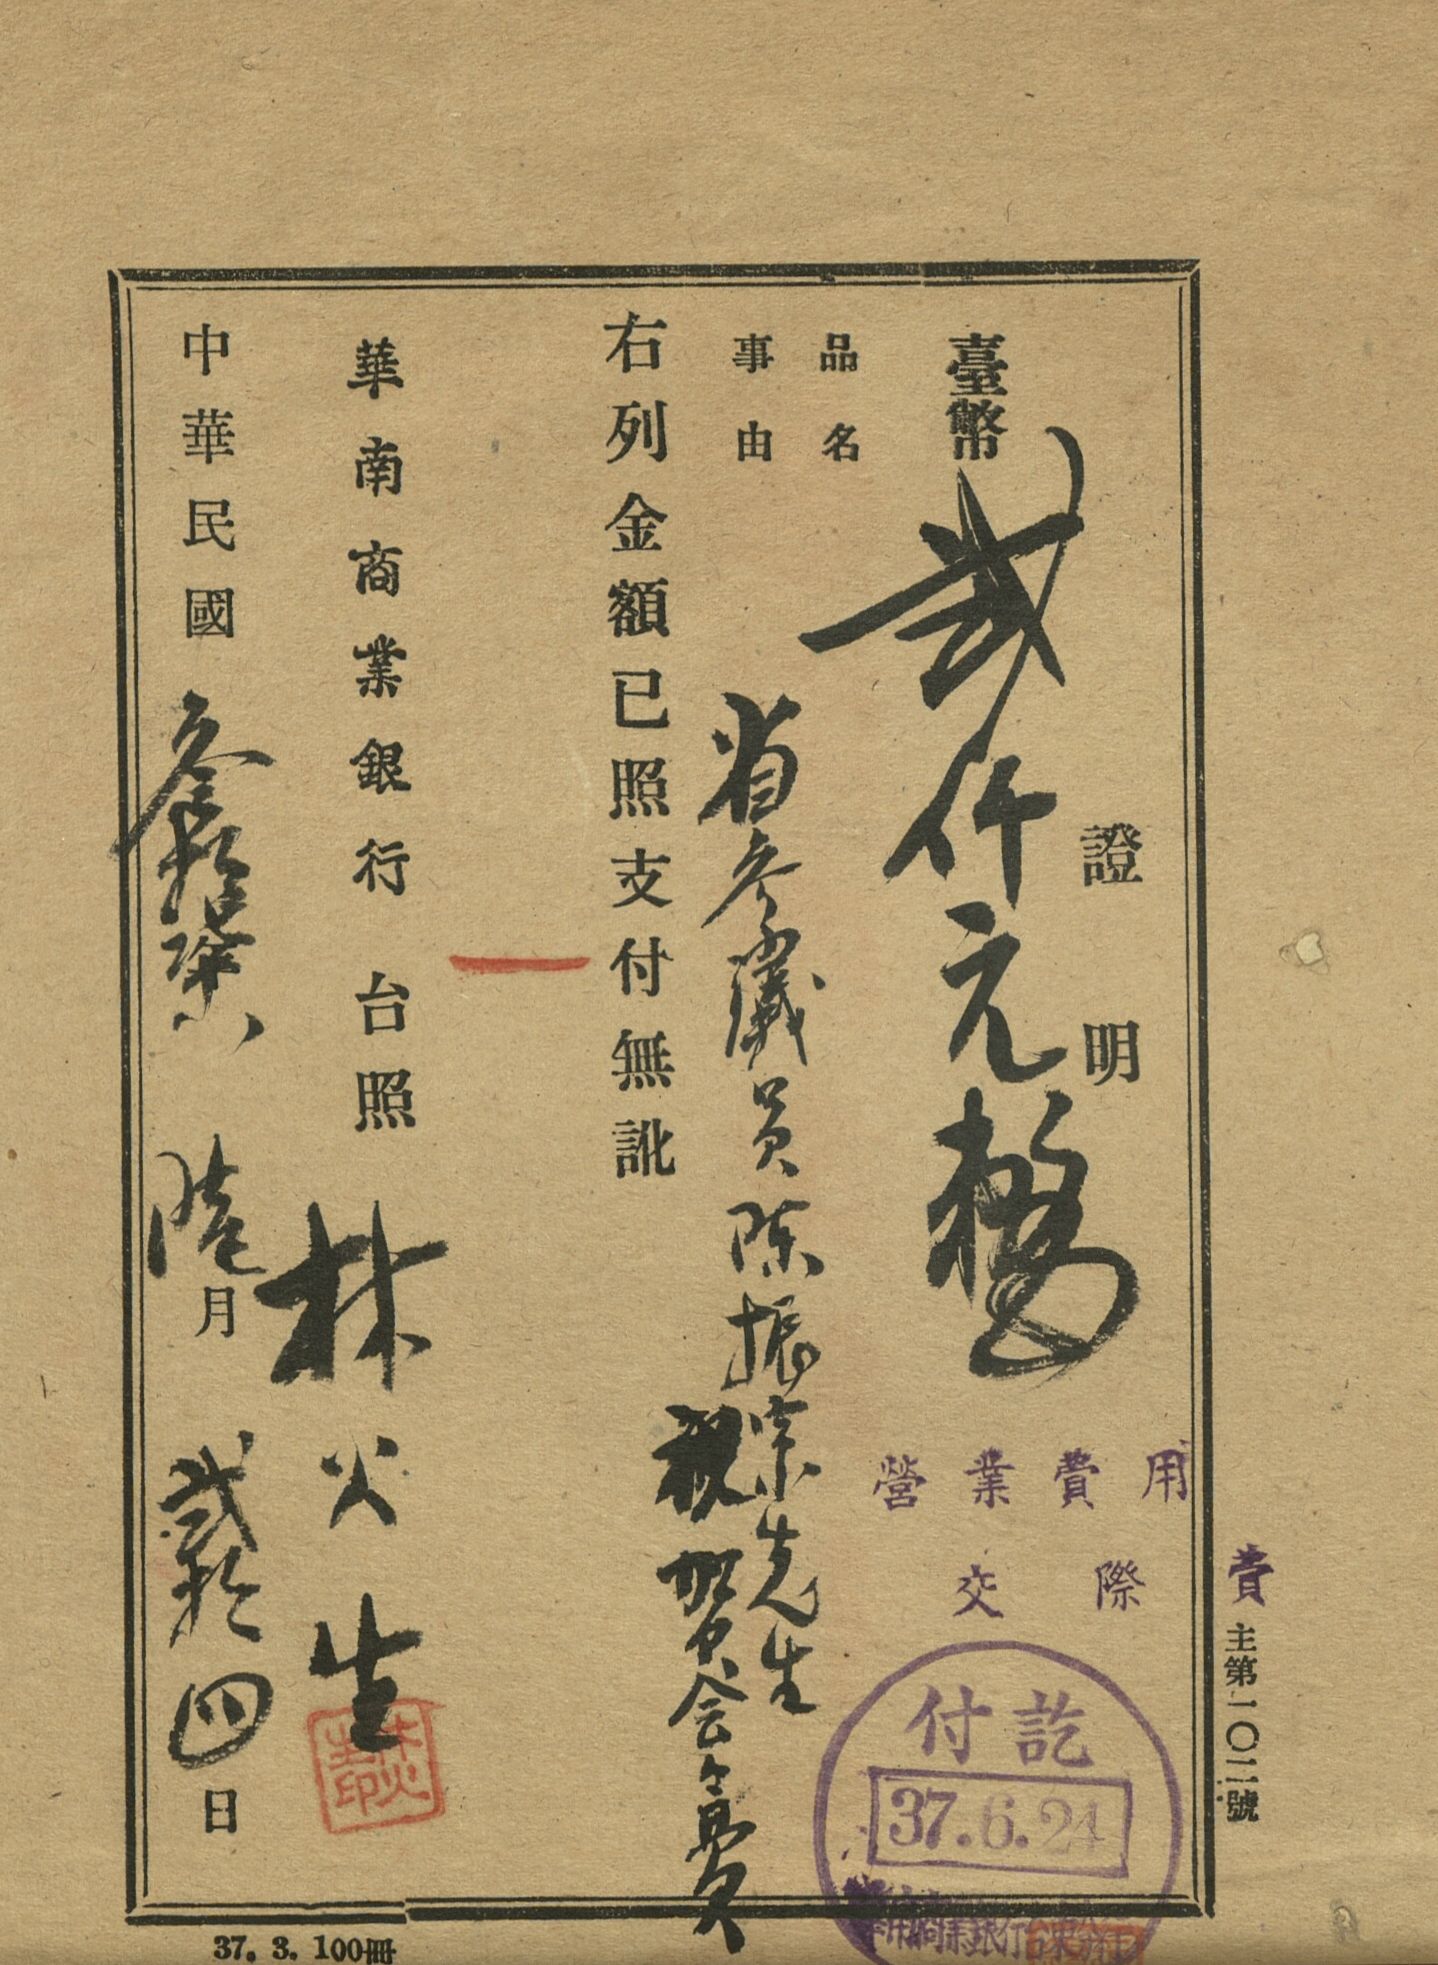 證明
臺幣 貳仟元整
品名
事由
省參議員陳振宗先生
祝賀会々費
右列金額已照支付無訛
華南商業銀行 台照
林火生
中華民國 叁拾柒 陸月 貳拾四日
營業費用
交際費
付訖
37.6.24
華南商業銀行
主第一〇二號
37. 3. 100冊